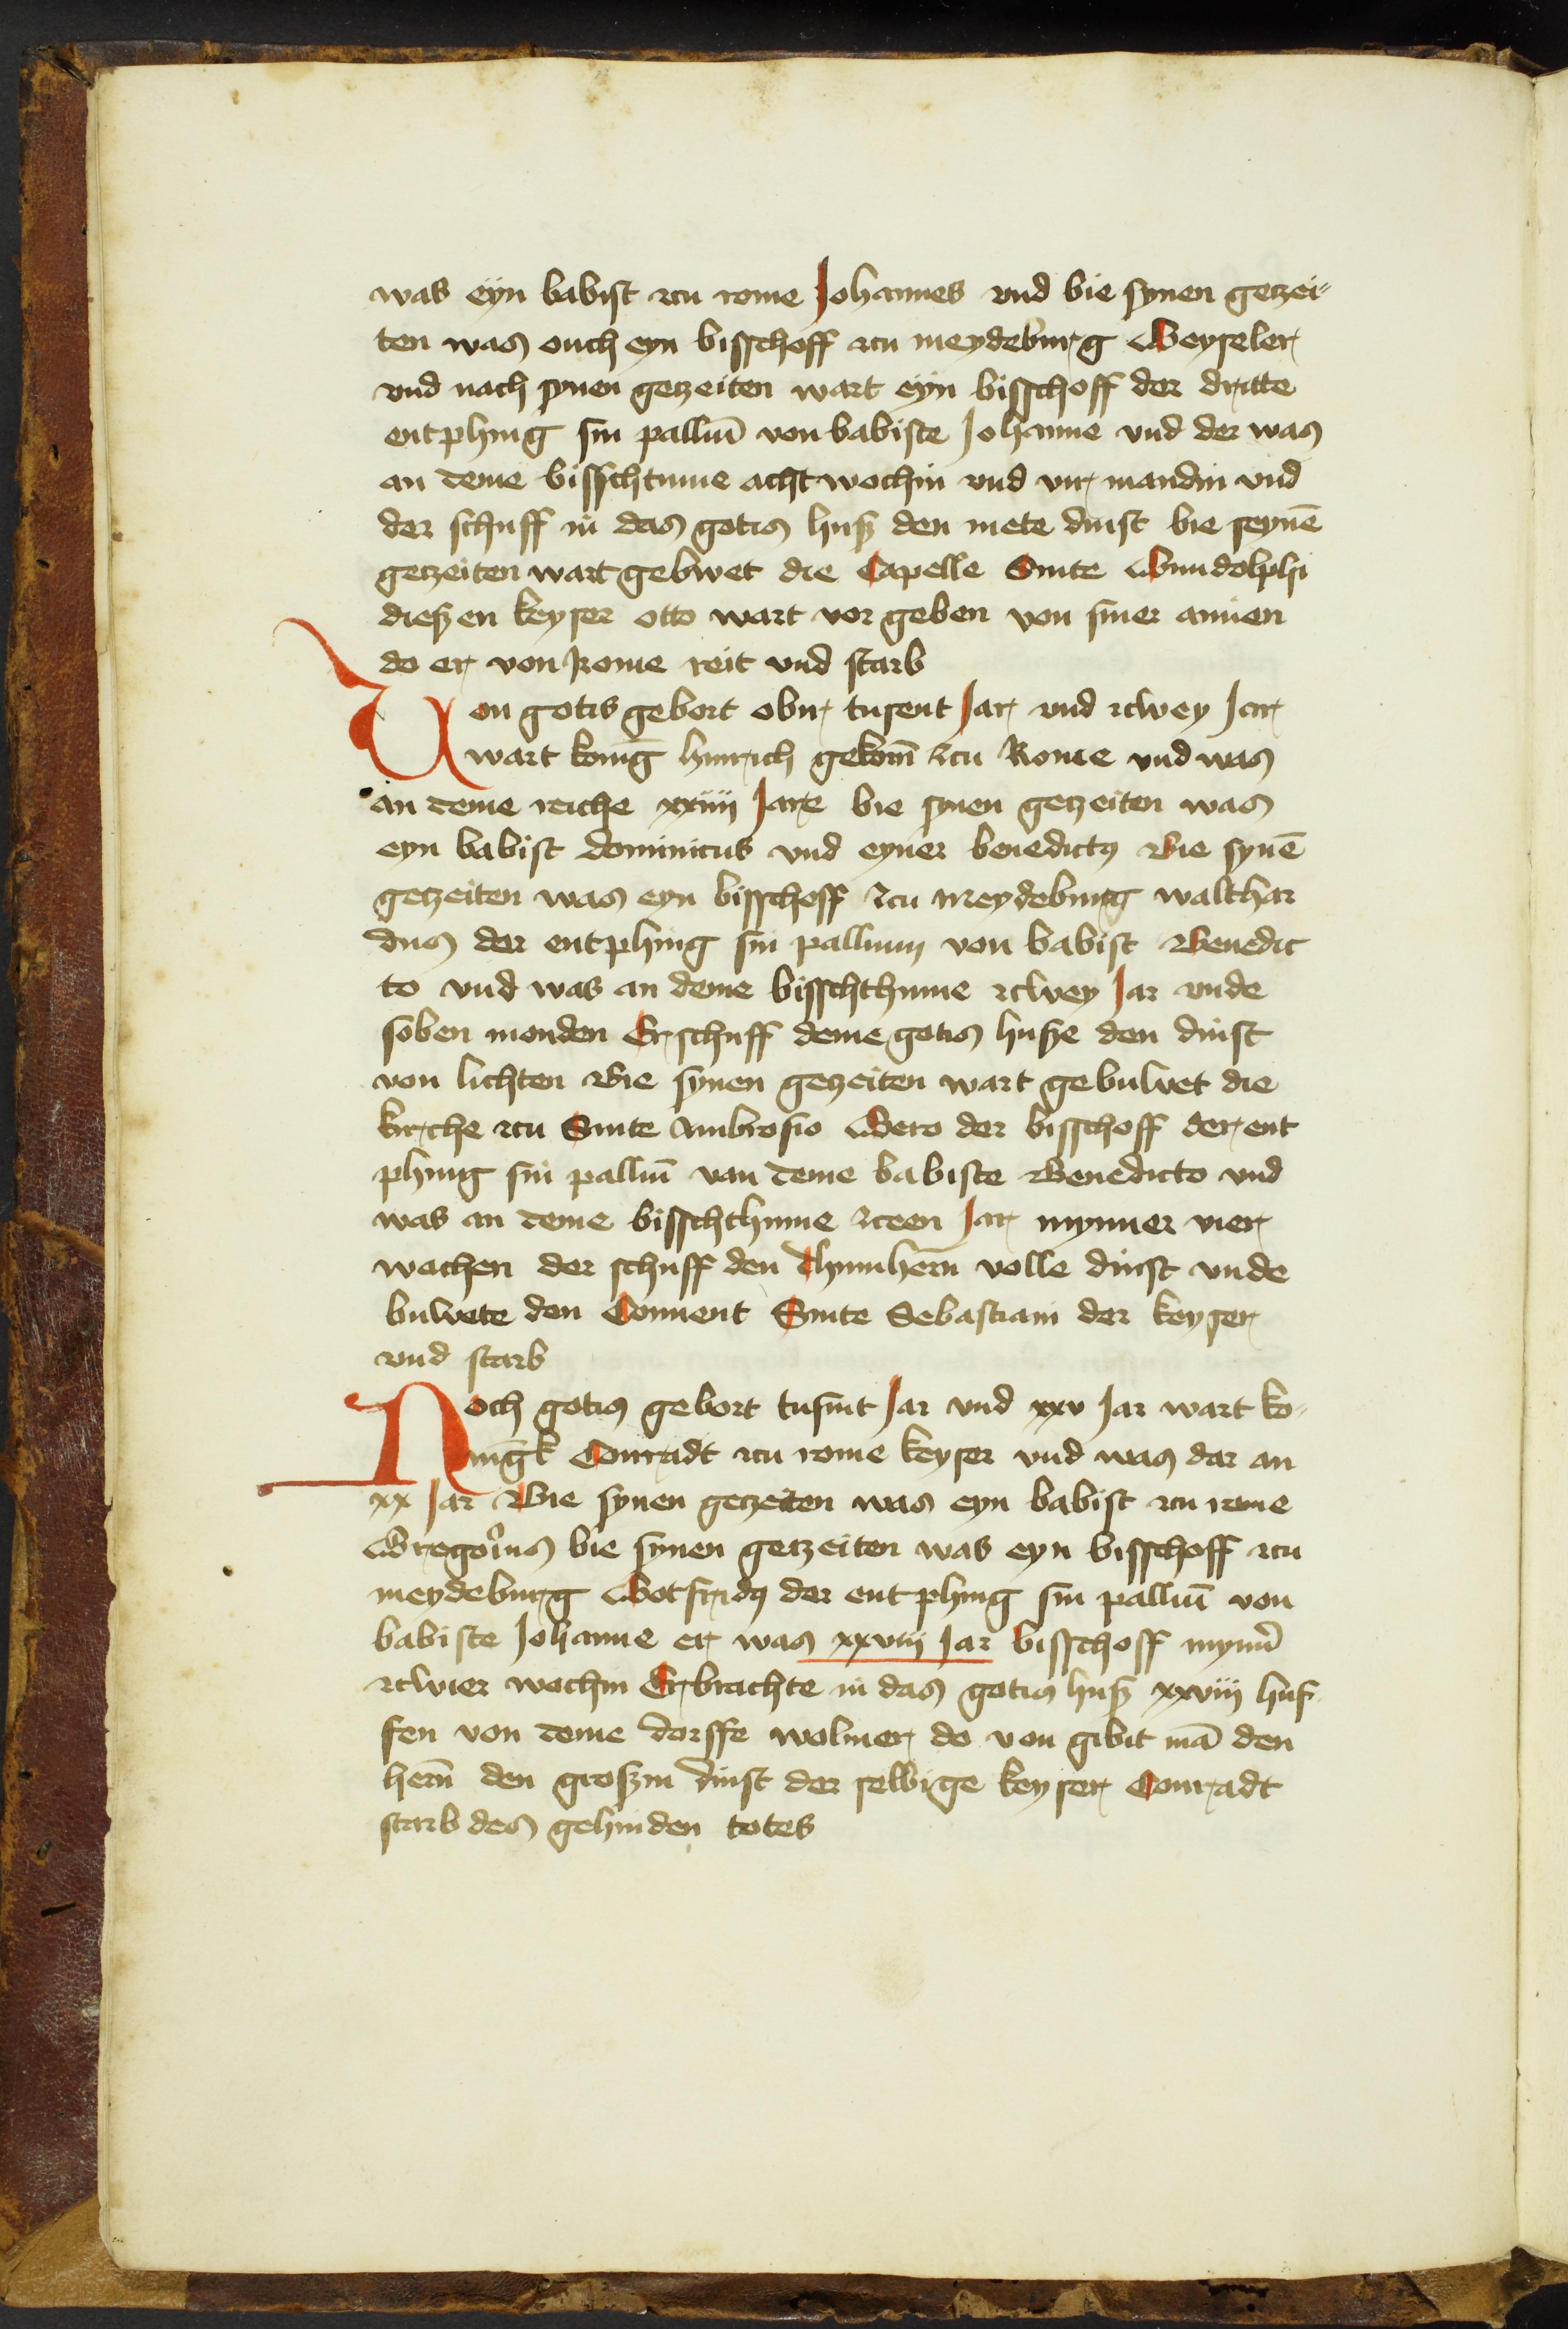 was eyn babist zcu rome Johannes vnd bie synen getzei-
ten was ouch eyn bisschoff zcu meydeburg Geyseler
vnd nach synen getzeiten wart eyn bisschoff der dritte
entphing sin palliu̅ von babiste Johanne vnd der was
an deme bisschtume acht wochin vnd vir mandin vnd
der schuff in das gotis husz den mete dinst bie seyne̅
getzeiten wart gebwet die Capelle Sinte Gundolphi
dieszen keyser otto wart vor geben von siner amien
do er von Rome reit vnd starb
Von gotis gebort obir tusent Jar vnd zcwey Jar
wart konig̅ hinrich gekom̅ zcu Rome vnd was
an deme reiche xxiiii Jare bie synen getzeiten was
eyn babist dominicus vnd eyner benedictꝰ Bie syne̅
getzeiten was eyn bisschoff zcu meydeburg walthar
dus der entphing sin pallium von babist Benedic
to vnd was an deme bisschthume zcwey Jar vnde
soben monden Er schuff deme gotis husze den dinst
von lichten Bie synen getzeiten wart gebuwet die
kirche zcu Sinte Ambrosio Gero der bisschoff der ent
phing sin palliu̅ van deme babiste Benedicto vnd
was an deme bisschthume zceen Jar mynner vier
wachen der schuff den thumhern̅ volle dinst vnde
buwete den Conuent Sinte Sebastiani der keyser
vnd starb
Noch gotis gebort tusint Jar vnd xxv Jar wart ko-
nig̅k Conradt zcu rome keyser vnd was dar an
xx Jar Bie synen getzeiten was eyn babist zcu rome
Gregorius bie synen getzeiten was eyn bisschoff zcu
meydeburg Gotfridꝰ der entphing sin palliu̅ von
babiste Johanne er was xxviii Jar bisschoff myn̅er
zcwier wochin Er brachte in das gotis husz xxviii huf-
fen von deme dorffe wolmer do von gibit ma̅ den
hern̅ den groszin dinst der selbige keyser Conradt
starb des gehinden totes